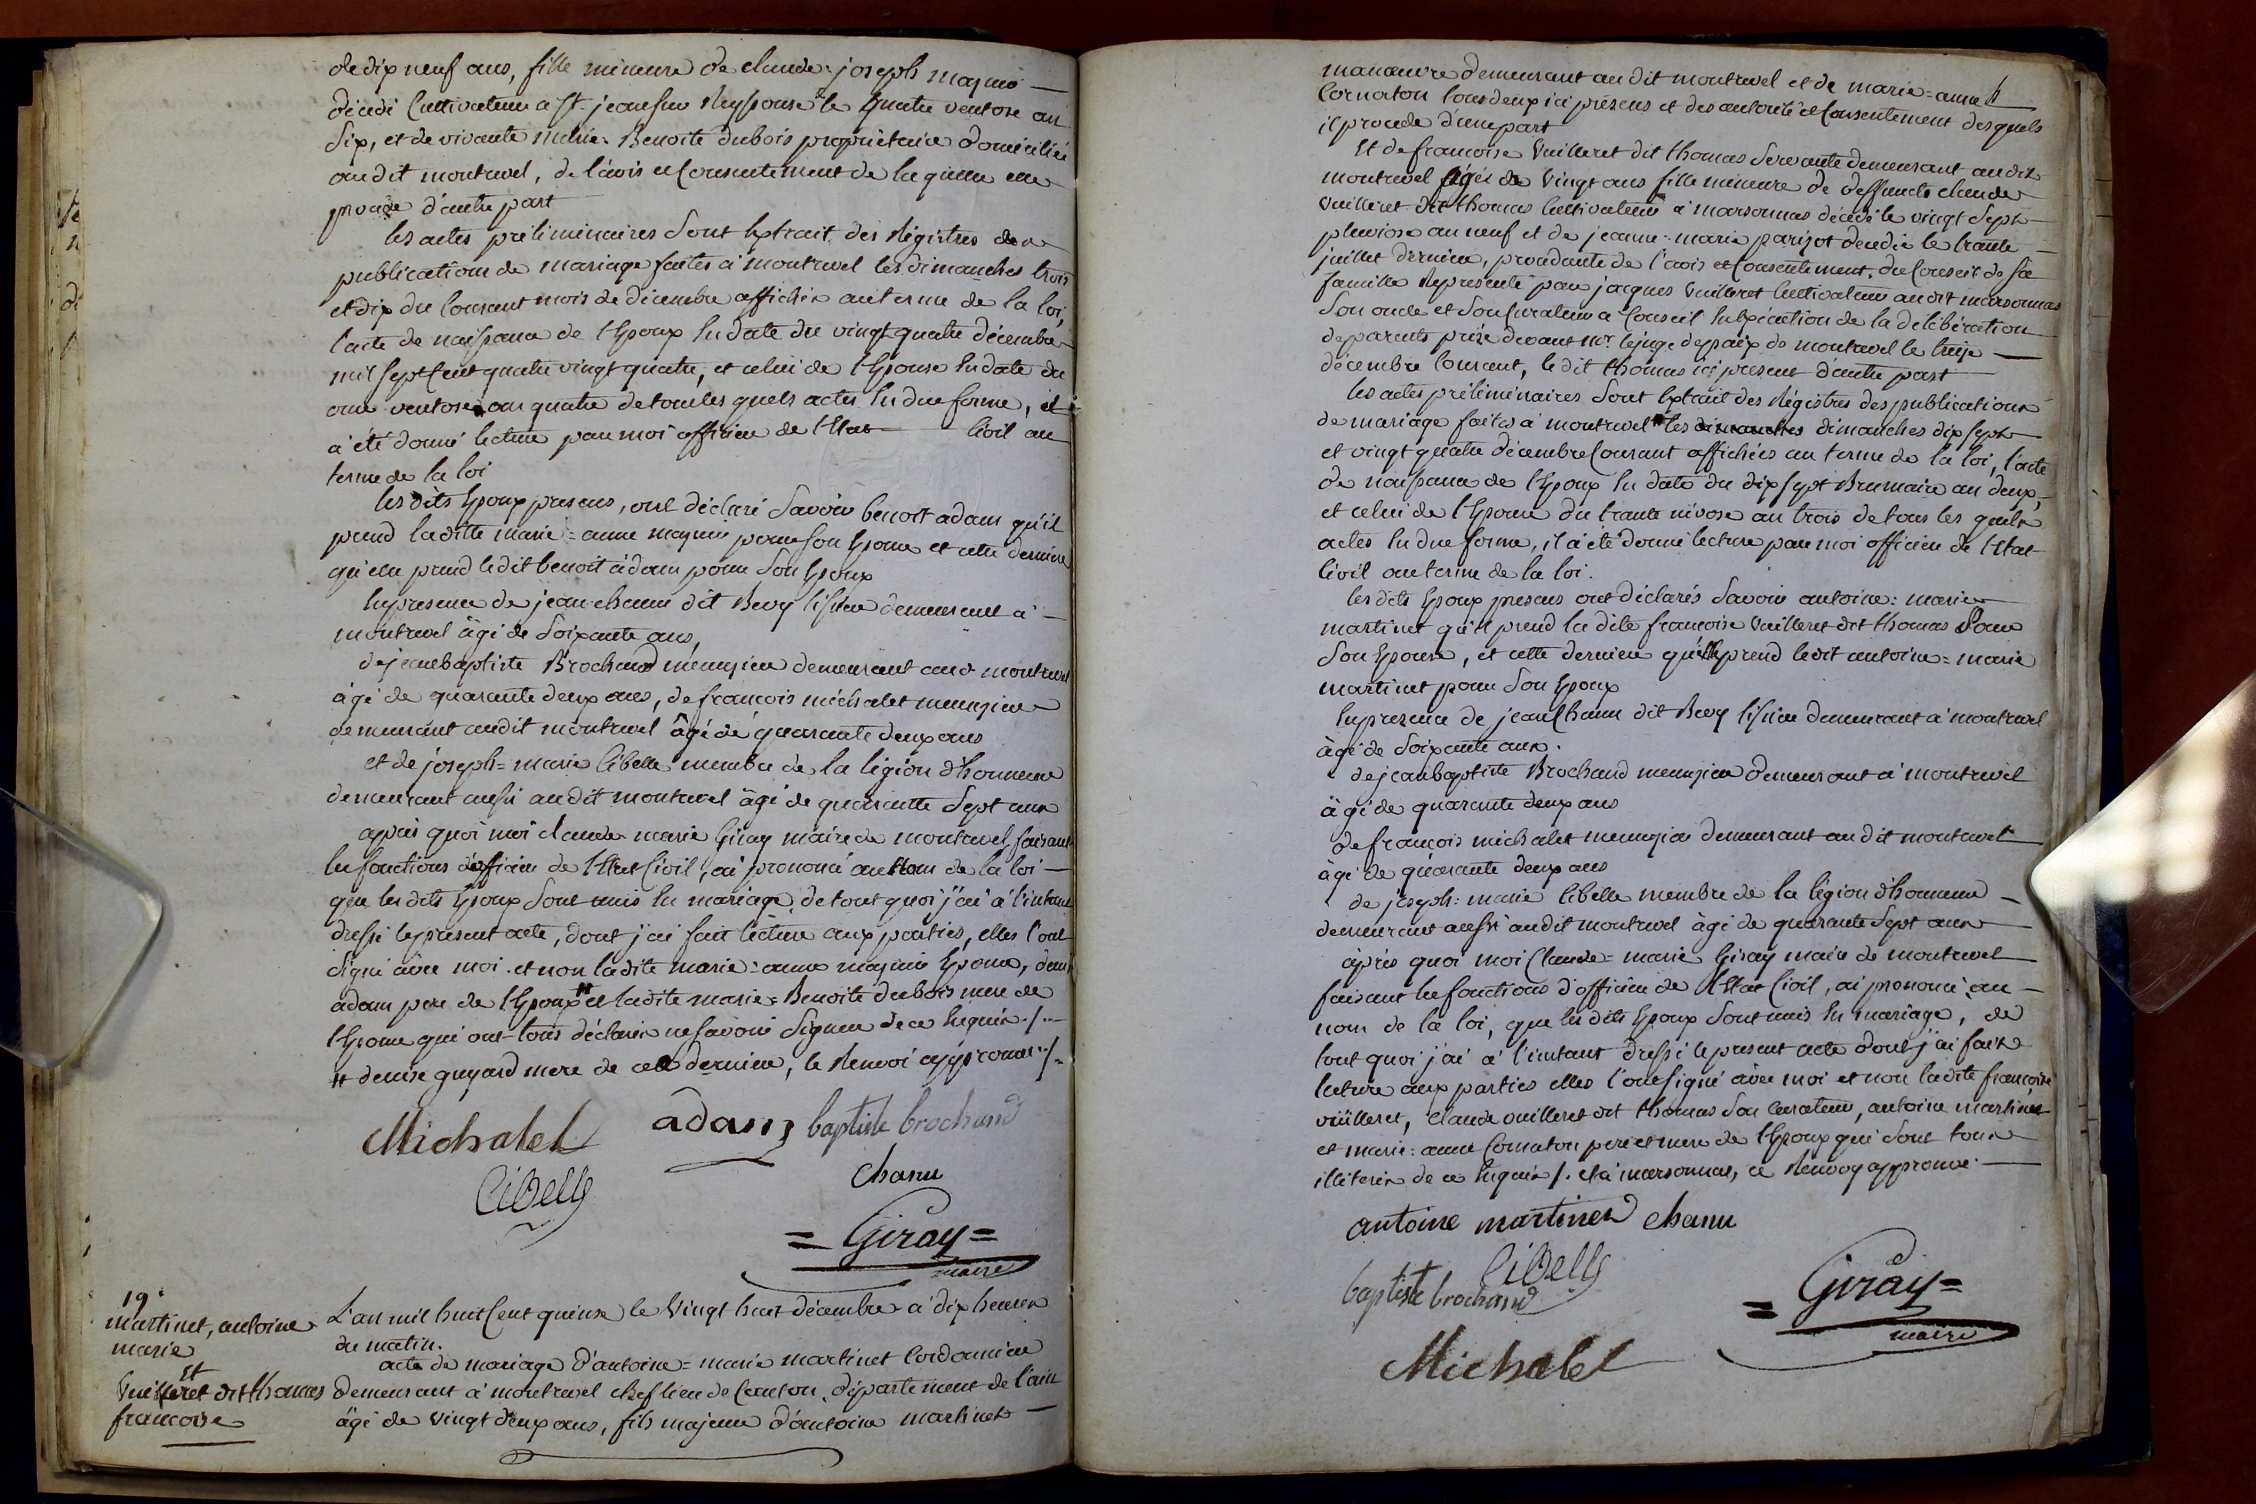 de dix neuf ans, fille mineure de claude=joseph magnin
décédé Cultivateur a St. jean sur Reyssouse le quatre ventose an
six, et de vivante marie=Benoite dubois propriétaire domiciliée
au dit montrevel, de l'avis et Consentement de laquelle elle
procede d'autre part
les actes préliminaires sont Extrait des Régistres de
publication de mariage faites à montrevel les dimanches trois
et dix du Courant mois de décembre affichés au terme de la loi,
l'acte de naissance de l'Epoux En date du vingt quatre décembre
mil sept Cent quatre vingt quatre, et celui de l'Epouse En date du
onze ventose an quatre de tous les quels actes En due forme, il
a été donné lecture par moi officier de l'Etat Civil au
terme de la loi
les dits Epoux presens, ont déclaré Savoir benoit adam qu'il
prend laditte marie=anne magnin pour son Epouse et cette derniere
qu'elle prend ledit benoit adam pour Son Epoux
En presence de jean chanu dit Bevy demeurant à
montrevel âgé de Soixante ans,
de jean baptiste Brochand menuzier demeurant aud. montrevel
âgé de quarante deux ans, de françois michalet menuzier
demeurant audit montrevel âgé de quarante deux ans
et de joseph=marie Cibelle membre de la légion d'honneur
demeurant aussi audit montrevel âgé de quarante Sept ans
après quoi moi claude marie Giray maire de montrevel faisant
les fonctions d'officier de l'Etat Civil, ai prononcé au Nom de la loi
que les dits Epoux Sont unis En mariage, de tout quoi j'ai à l'instant
dressé le present acte, dont j'ai fait lecture aux parties, elles l'ont
Signé avec moi. et non ladite marie=anne magnin Epouse, denis
adam pere de l'Epoux # et ladite marie=Benoite dubois mere de
l'Epouse qui ont tous déclarés ne savoir Signer de ce Enquis ./.
# denise guyard mere de ce dernier, le Renvoi approuvé ./.
Michalet adam baptiste brochand
Cibelle chanu
= Giray =
maire
19e
martinet, antoine
marie
Et
Vuilleret dit thomas
francoise
L'an mil huit Cent quinze le Vingt huit décembre à dix heures
du matin.
acte de mariage d'antoine=marie martinet Cordonnier
demeurant à montrevel chef lieu de Canton, département de l'ain
âgé de vingt deux ans, fils majeur d'antoine martinet
manœuvre demeurant au dit montrevel et de marie=anne
Cornaton tous deux ici présens et des autorité et Consentement des quels
il procede d'une part
Et de francoise Vuilleret dit thomas Servante demeurant au dit
montrevel âgée de Vingt ans fille mineure de deffuncts claude
Vuilleret dit thomas Cultivateur à marsonnas décédé le vingt Sept
pluviose an neuf et de jeanne=marie parizot decedée le trente
juillet dernier, procedante de l'avis et Consentement du Conseil de sa
famille Représenté par jacques Vuilleret Cultivateur au dit marsonnas
Son oncle et Son Curateur a Conseil En Exécution de la délibération
de parents prise devant Mr. le juge de paix de montrevel le treize
décembre Courant, le dit thomas ici present d'autre part
les actes préliminaires Sont Extrait des Régistres des publications
de mariage faites à montrevel les dimanches dimanches dix sept
et vingt quatre décembre Courant affichées au terme de la loi, l'acte
de naissance de l'Epoux En date du dix Sept Brumaire an deux,
et celui de l'Epouse du trente nivose an trois de tous les quels
actes En due forme, il a été donné lecture par moi officier de l'Etat
Civil au terme de la loi.
les dits Epoux presens ont déclarés Savoir antoine=marie
martinet qu'il prend la dite françoise Vuilleret dit thomas Pour
Son Epouse, et cette derniere qu'elle prend ledit antoine=marie
martinet pour Son Epoux
En presence de jean Chanu dit Bevy demeurant à montrevel
âgé de Soixante ans.
de jean baptiste Brochand menuzier demeurant à montrevel
âgé de quarante deux ans
de françois michalet menuzier demeurant au dit montrevel
âgé de quarante deux ans
de joseph=marie Cibelle membre de la légion d'honneur
demeurant aussi audit montrevel âgé de quarante Sept ans
après quoi moi Claude=marie Giray maire de montrevel
faisant les fonctions d'officier de l'Etat Civil, ai prononcé au
nom de la loi, que les dits Epoux Sont unis En mariage, de
tout quoi j'ai à l'instant dressé le present acte dont j'ai fait
lecture aux parties elles l'ont Signé avec moi et non ladite françoise
vuilleret, claude vuilleret dit thomas Son Curateur, antoine martinet
et marie=anne Cornaton pere et mere de l'Epoux qui Sont tous
illiterés de ce Enquis ./. et à marsonnas, ce Renvoy approuvé.
antoine martinet chanu
Cibelle
baptiste brochand = Giray =
maire
Michalet